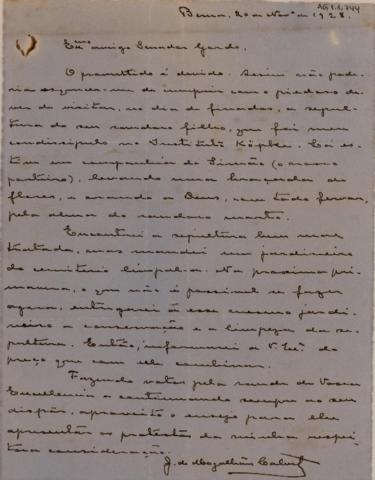 AG1.1.744
Berna, 20 de Nov.º de 1928.
Exmo amigo Senador Gordo,
O promettido é devido. Assim não pode-
ria esquecer-me de cumprir com o piedoso de-
ver de visitar, no dia de finados, a sepul-
tura do seu saudoso filho, que foi meu
condiscipulo no Instituto Köpke. Lá es-
tive em companhia do Simão (o nosso
porteiro), levando uma braçada de
flores, e orando a Deus, com todo fervor,
pela alma do saudoso morto.
Encontrei a sepultura bem mal
tratada, mas mandei um jardineiro
do cemiterio limpal-a. Na proxima pri-
mavera, o que não é possivel se fazer
agora, entregarei á esse mesmo jardi-
neiro a conservação e a limpeza da se-
pultura. Então, informarei a V. Exª. do
preço que com elle combinar.
Fazendo votos pela saude de Vossa
Excellencia e continuando sempre ao seu
dispôr, aproveito o ensejo para lhe
apresentar os protestos da minha respei-
tosa consideração.
J. de Magalhães Calvet